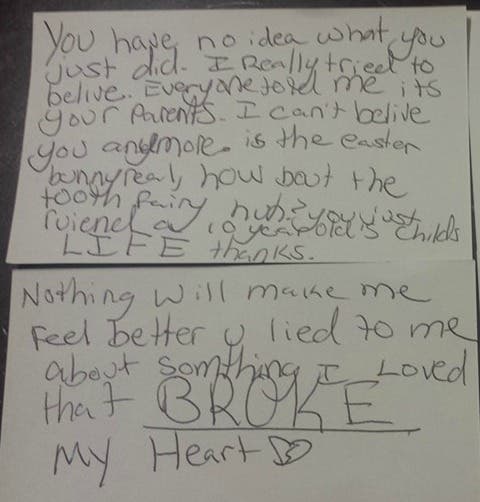 You have no idea what you
just did. I Really tried to
belive. Everyone totd me its
your parents. I can't belive
you anymore. is the easter
bunny real, how bout the
tooth fairy huh? you just
ruiened a 10 year old's childs
LIFE thanks.
Nothing will make me
Feel better u lied to me
about somthing I Loved
that BROKE
My Heart